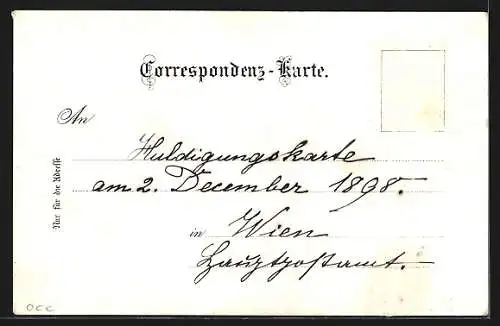 Correspondenz-Karte.
An
Huldigungskarte
am 2. December 1898.
in Wien
Hauptpostamt.
Nur für die Adresse
OCC